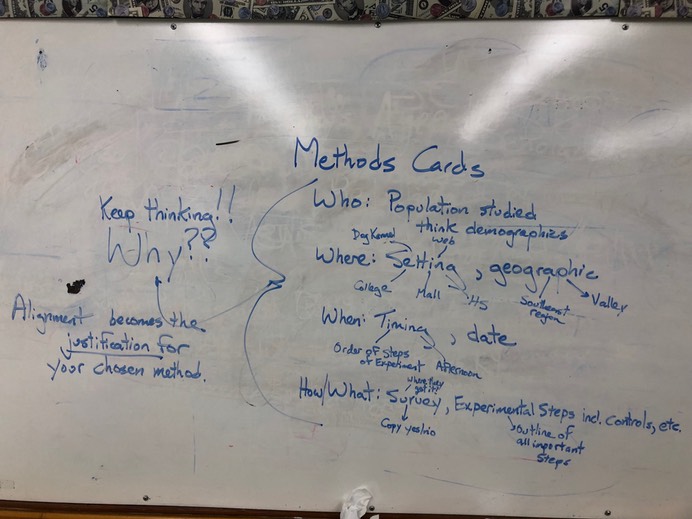 Methods Cards
Keep thinking!!
Why??
Alignment becomes the
justification for
your chosen method.
Who: Population studied
think demographics
Dog Kennel
Web
Where: Setting, geographic
College
Mall
HS
Southeast
region
Valley
When: Timing, date
Order of Steps
of Experiment
Afternoon
where they
got it?
How/What: Survey, Experimental Steps incl. Controls, etc.
Copy yes/no
Outline of
all important
Steps